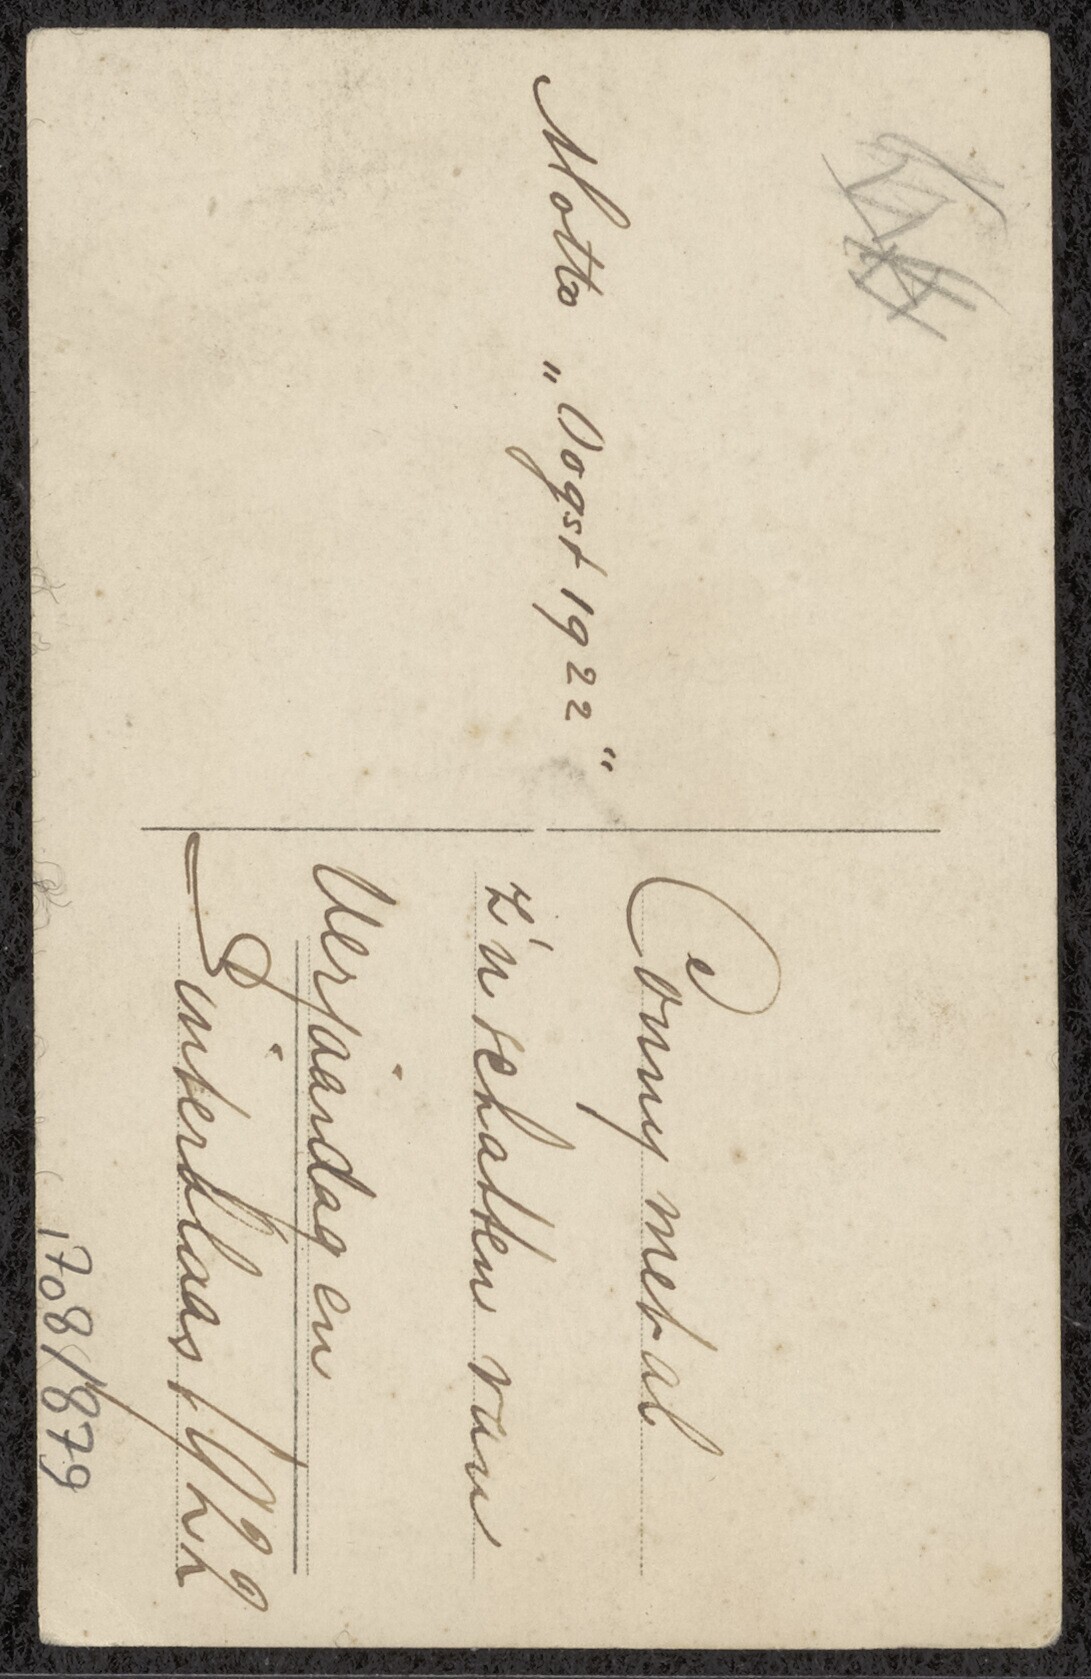 Motto „Oogst 1922"
Conny met al
z'n schatten van
Verjaardag en
Sinterklaas 1922
1708/879